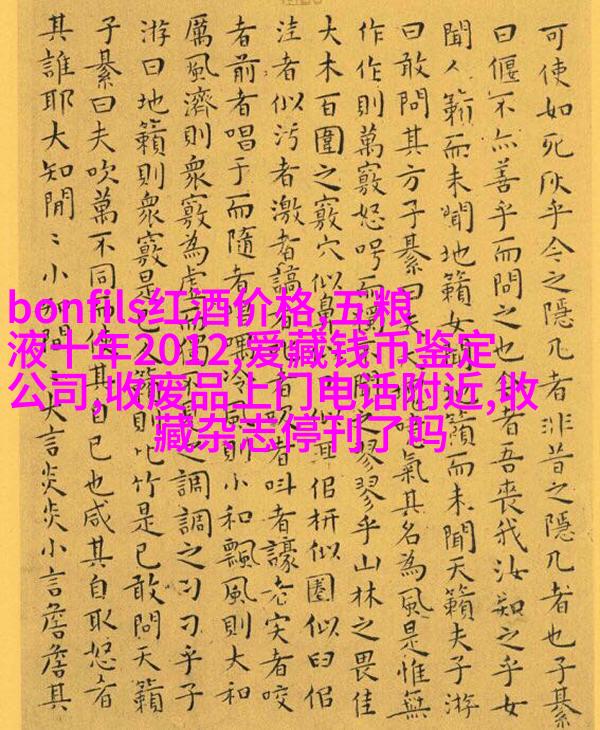 可使如死灰乎今之隱几者非昔之隱几者也子綦
曰偃不亦善乎而問之也 者吾喪我汝知之乎女
聞人籟而未聞地籟女聞 籟而未聞天籟夫子游
曰敢問其方子綦曰夫 噫氣其名為風是惟無
作作則萬竅怒呺而獨 之翏翏乎山林之畏佳
大木百圍之竅穴似鼻 耳佀枅似圈似臼佀
洼者似污者激者謞者 者叫者譹者宎者咬
者前者唱于而隨者 喁泠風則小和飄風則大和
厲風濟則衆竅為虛而 調調之刁刁乎子
游曰地籟則衆竅是已 籟則比竹是已敢問天籟
子綦曰夫吹萬不同而使其自己也咸其自取怒者
其誰耶大知閒〻小知間〻大言炎炎小言詹詹其
bonfils红酒价格,五粮
液十年2012,爱藏钱币鉴定
公司,收废品上门电话附近,收
藏杂志停刊了吗